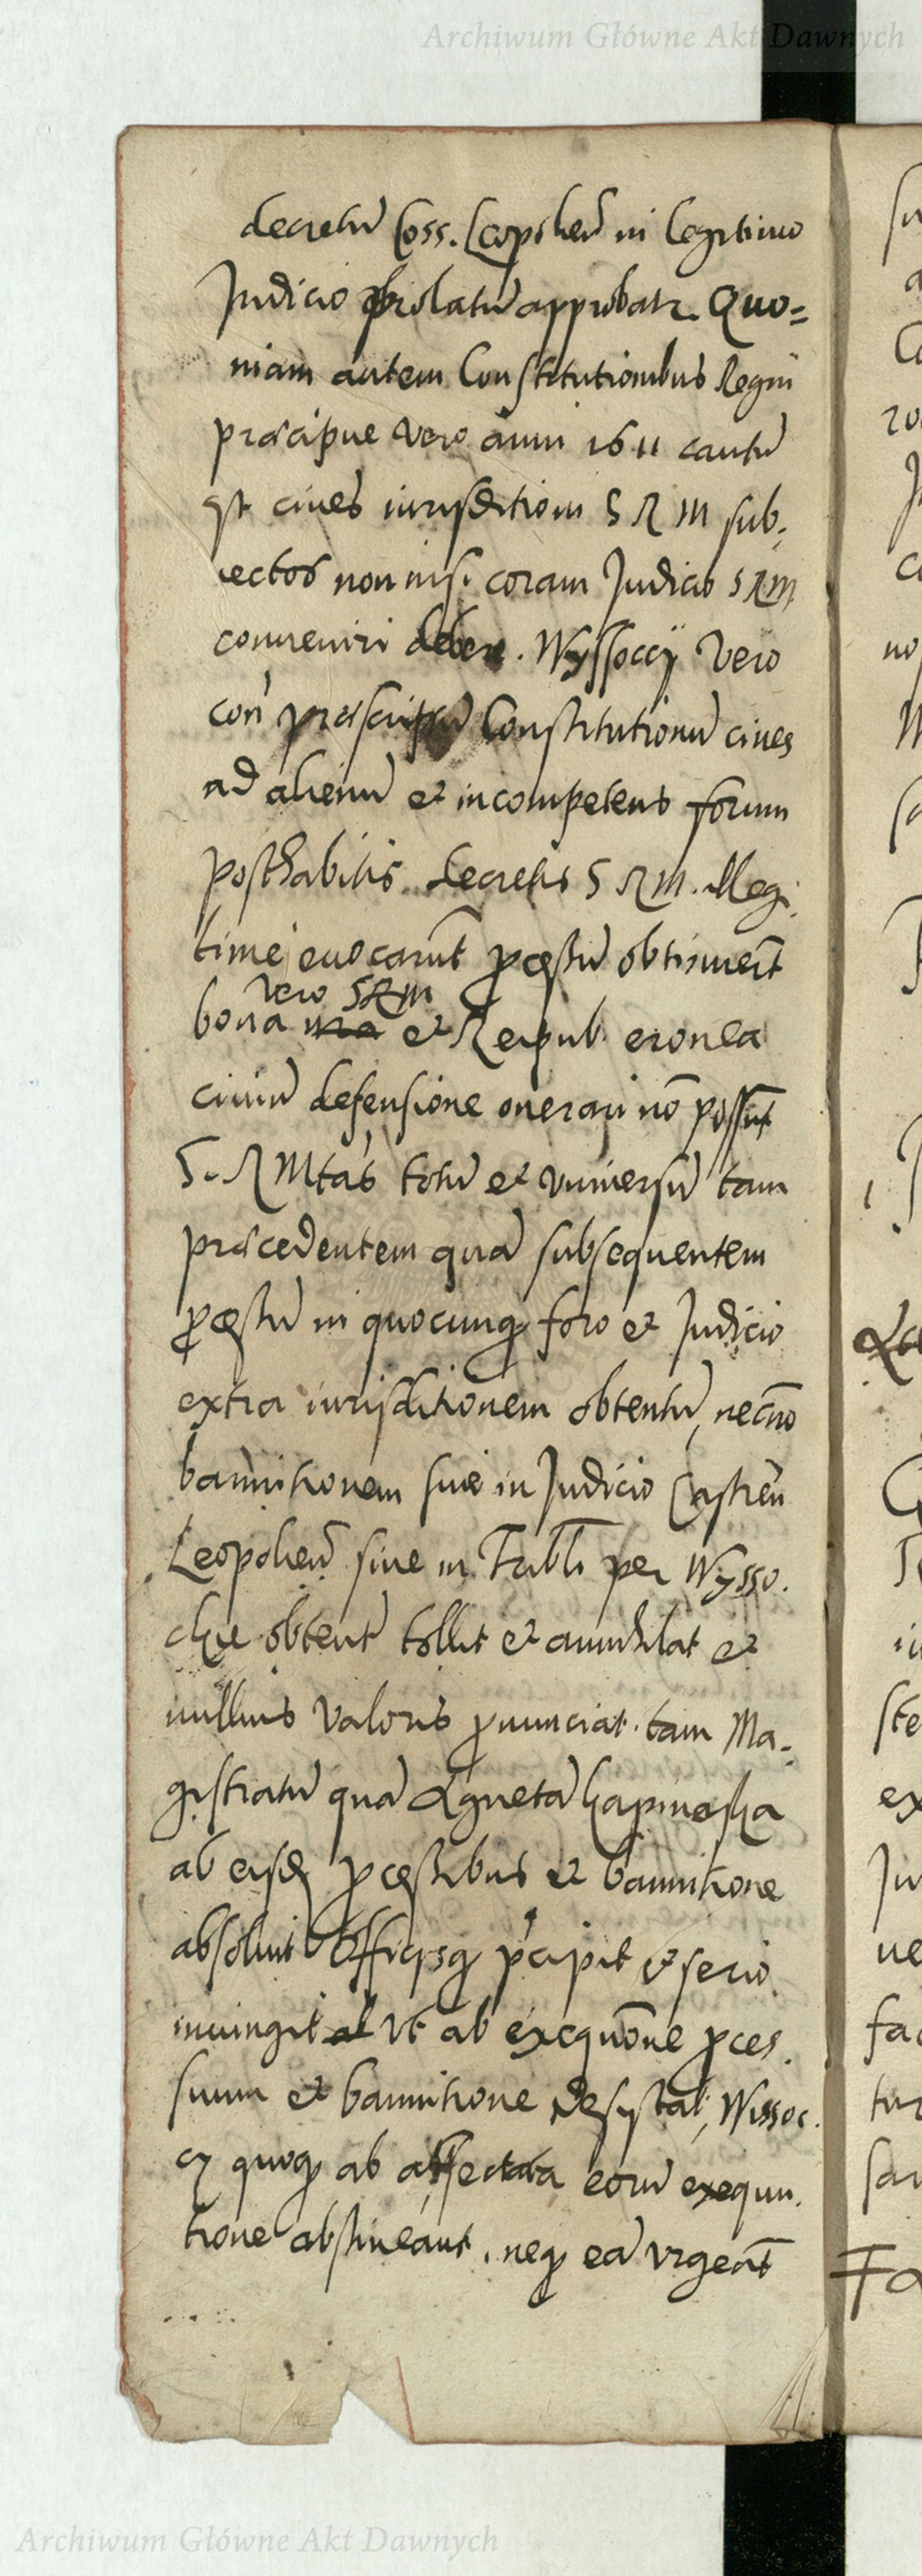 Archiwum Główne Akt Dawnych
decretũ Coss. Leopolieñ in legitimo
Judicio prolatũ approbatr. Quo=
niam autem Constitutionibus Regni
præcipue vero anni 1611 cautũ
est cives iurisditioni S R M sub,
iectos non nisi coram Judicio SRM
conveniri debere. Wyssoccÿ vero
con præscriptũ Constitutionũ cives
ad alienũ et incompetens forum
posthabitis decretis S R M. illegi,
time evocarũt pcessũ obtinuerũt
vero SRM
bona et Reipub. eronea
civiũ defensione onerari nõ possũt
S. R Mtas totũ et universũ tam
præcedentem quã subsequentem
pcessũ in quocunq foro et Judicio
extra iurisditionem obtentũ, necnõ
bannitionem sive in Judicio Castreñ
Leopolieñ sive in Tribli per Wysso.
ckie obtent tollit et annihilat et
nullius valoris pnunciat. tam Ma-
gistratũ quã Agnetã
ab eisd pcessibus et bannitione
absoluit Officysq pcipit et serio
iniungit al vt ab exequõne pces.
suum et bannitione desistat, Wissoc.
cy quoq ab affectata eorũ exequu.
tione abstineant, neq eã vrgeãt
Archiwum Główne Akt Dawnych